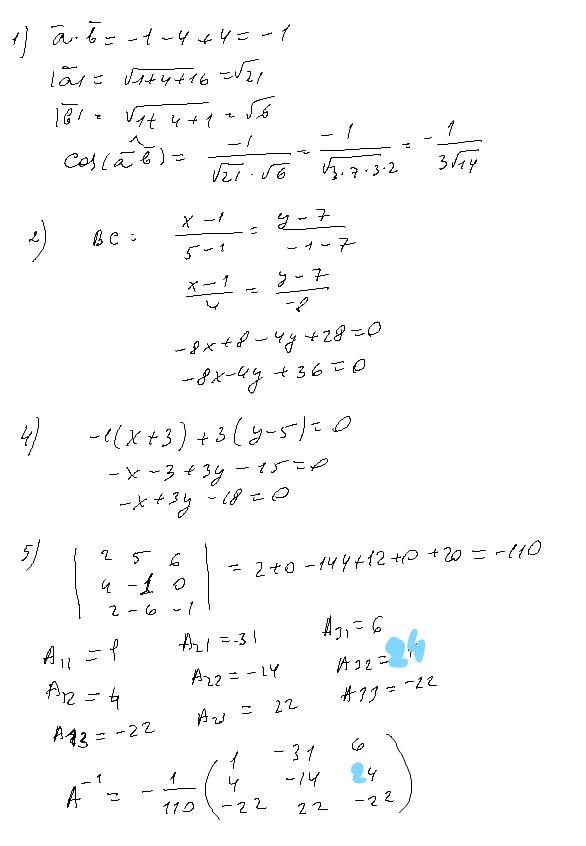 1) a̅·b̅ = -1-4+4 = -1
|a̅| = √1+4+16 = √21
|b̅| = √1+4+1 = √6
cos(a̅ b̅) = -1/(√21·√6) = -1/√3·7·3·2 = -1/(3√14)
2) BC: (x-1)/(5-1) = (y-7)/(-1-7)
(x-1)/4 = (y-7)/-8
-8x+8-4y+28=0
-8x-4y+36=0
4) -1(x+3)+3(y-5)=0
-x-3+3y-15=0
-x+3y-18=0
5) | 2 5 6 | = 2+0-144+12+0+20 = -110
| 4 -1 0 |
| 2 -6 -1 |
A11 = 1 A21 = -31 A31 = 6
A12 = 4 A22 = -14 A32 = 24
A13 = -22 A23 = 22 A33 = -22
A⁻¹ = -1/110 ( 1 -31 6
4 -14 24
-22 22 -22 )